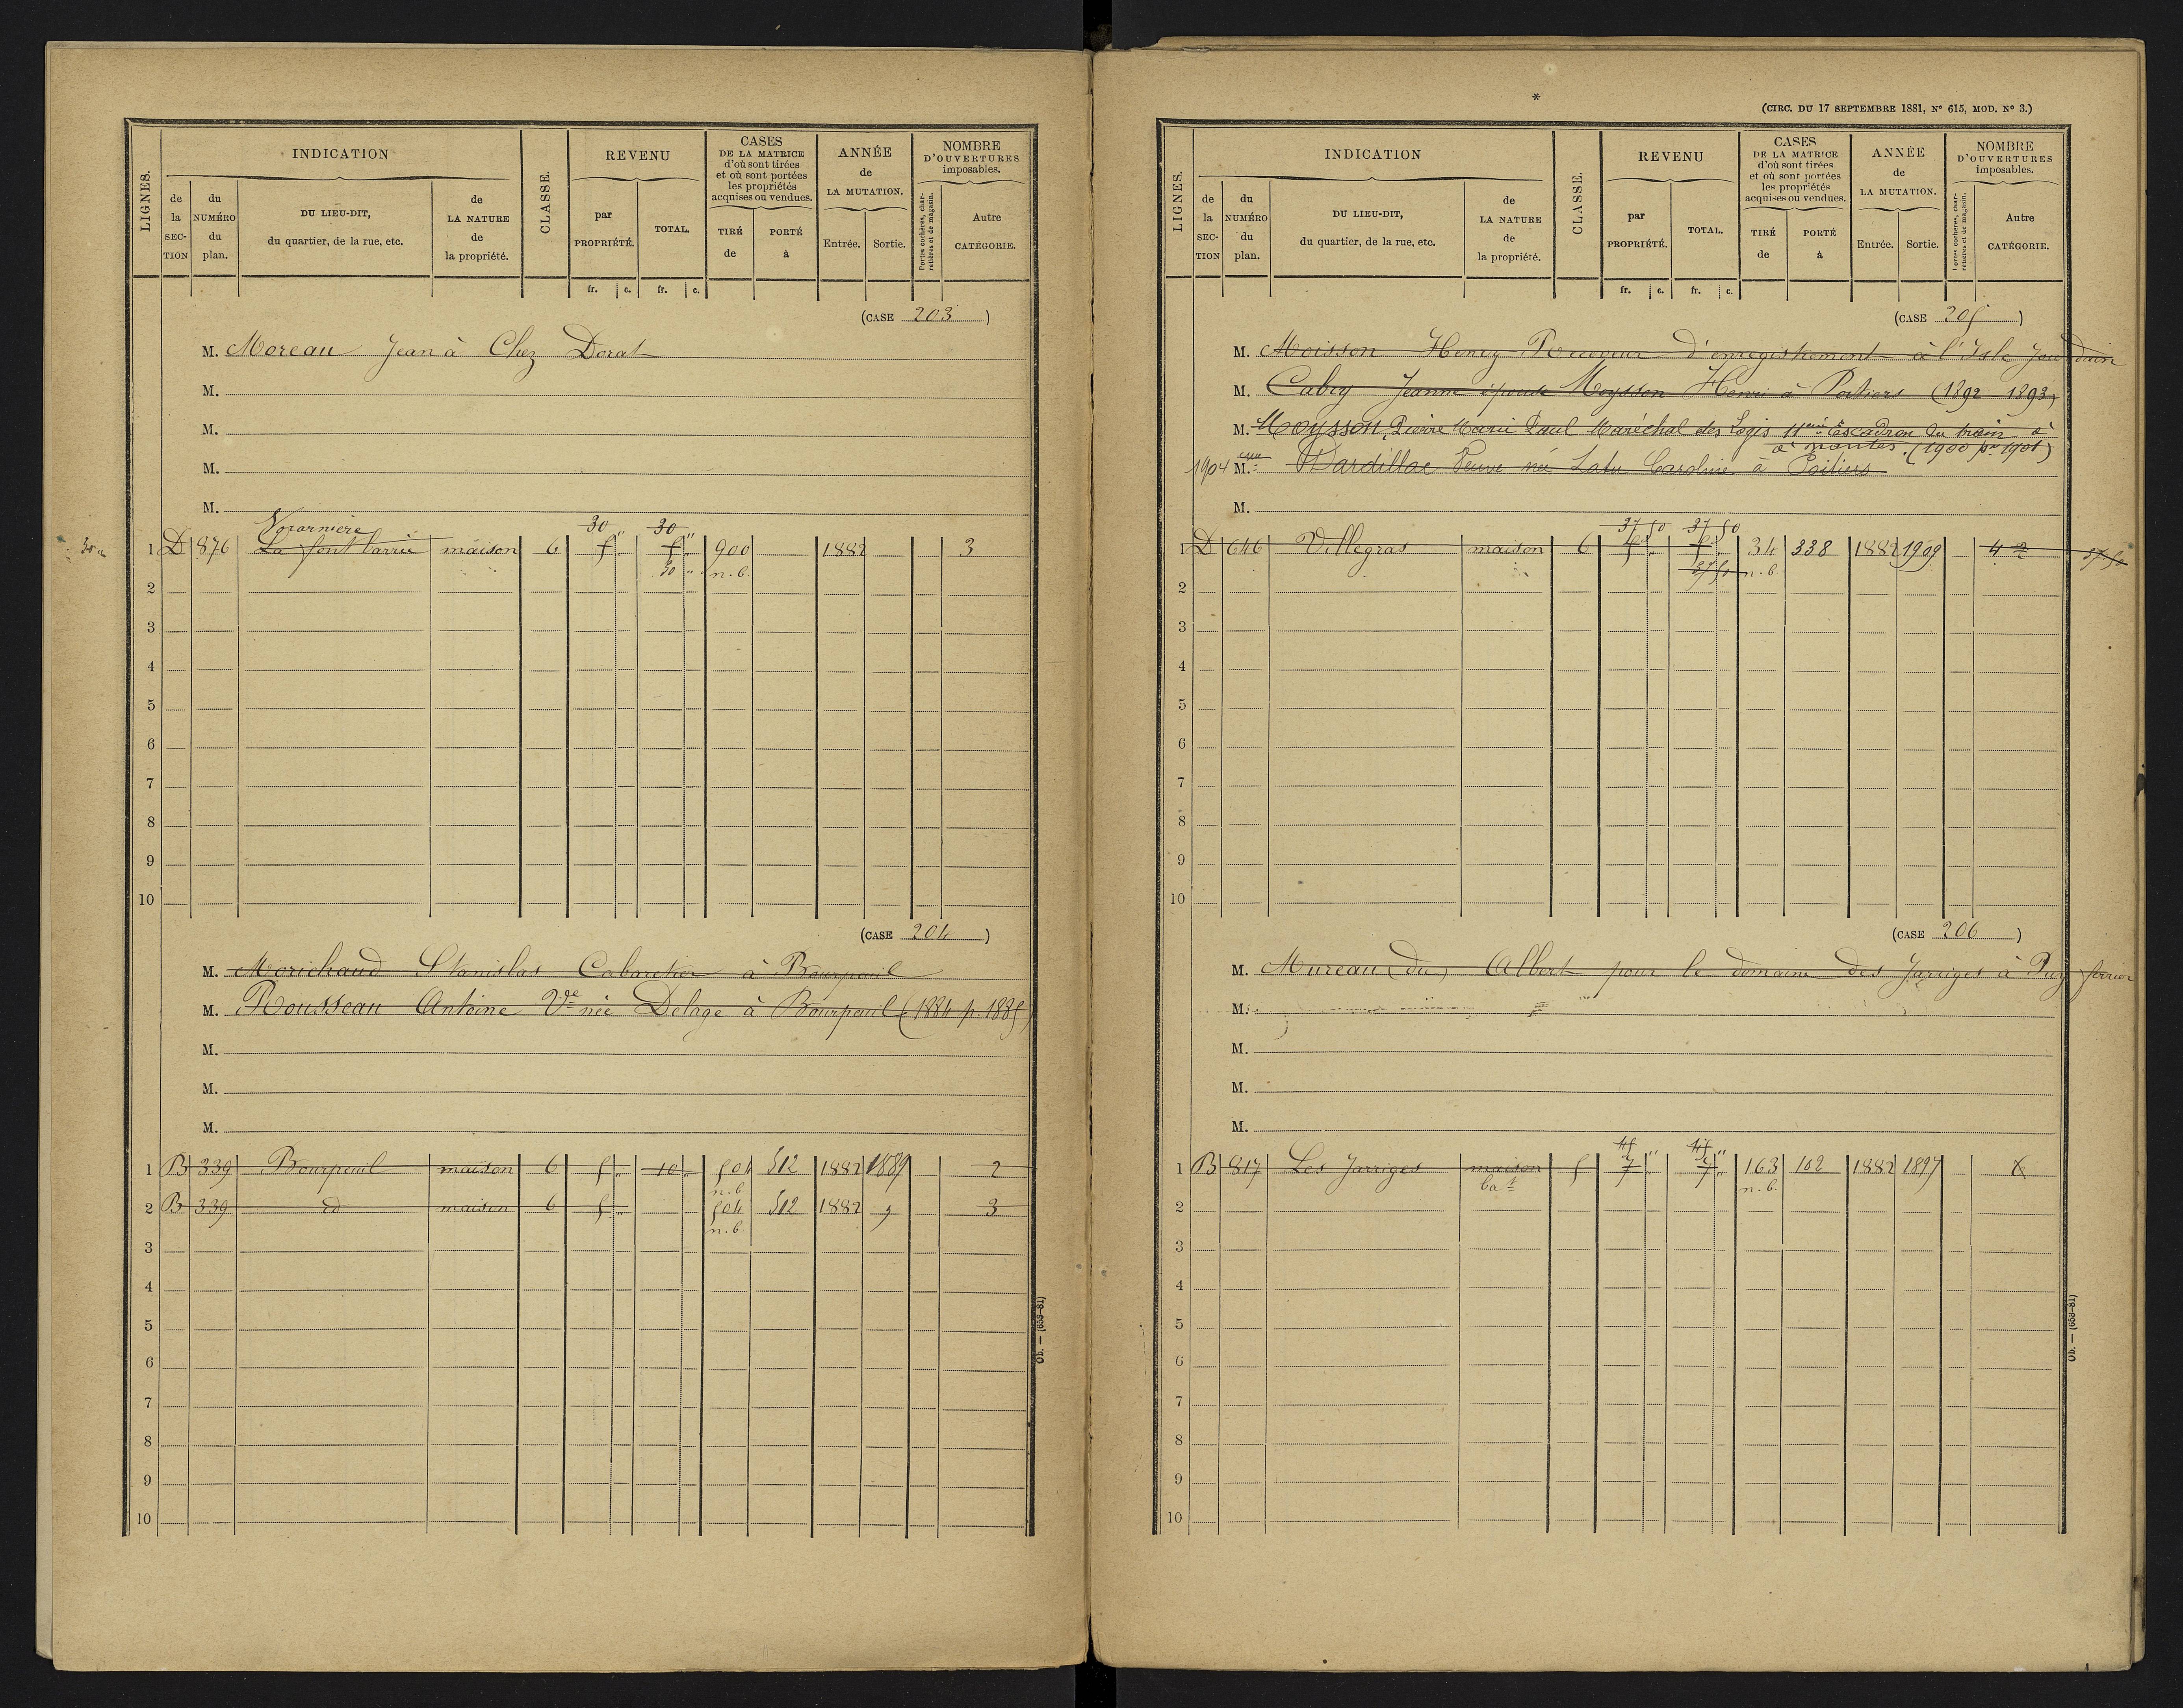 LIGNES.
INDICATION
de la SECTION
du NUMÉRO du plan.
DU LIEU-DIT, du quartier, de la rue, etc.
de LA NATURE de la propriété.
CLASSE.
REVENU
par PROPRIÉTÉ.
TOTAL.
CASES DE LA MATRICE d'où sont tirées et où sont portées les propriétés acquises ou vendues.
TIRÉ de
PORTÉ à
ANNÉE de LA MUTATION.
Entrée.
Sortie.
NOMBRE D'OUVERTURES imposables.
Portes cochères, charretières et de magasin.
Autre CATÉGORIE.
fr. c. fr. c.
(CASE 203)
M. Moreau Jean à Chez Dorat
M.
M.
M.
M.
30 " 30 "
1 D 876 maison 6 5 " 5 " 900 1882 3
30 " n.b.
2
3
4
5
6
7
8
9
10
(CASE 204)
M. Morichaud Stanislas Cabaretier à Bourpeuil
M. Rousseau Antoine Vve née Delage à Bourpeuil (1884 p. 1885)
M.
M.
M.
1 B 339 Bourpeuil maison 6 5 " 10 " 504 512 1882 1889 2
n.b.
2 B 339 id maison 6 5 " 504 512 1882 " 3
n.b.
3
4
5
6
7
8
9
10
Ob. — (653-81)
*
(CIRC. DU 17 SEPTEMBRE 1881, N° 615, MOD. N° 3.)
LIGNES.
INDICATION
de la SECTION
du NUMÉRO du plan.
DU LIEU-DIT, du quartier, de la rue, etc.
de LA NATURE de la propriété.
CLASSE.
REVENU
par PROPRIÉTÉ.
TOTAL.
CASES DE LA MATRICE d'où sont tirées et où sont portées les propriétés acquises ou vendues.
TIRÉ de
PORTÉ à
ANNÉE de LA MUTATION.
Entrée.
Sortie.
NOMBRE D'OUVERTURES imposables.
Portes cochères, charretières et de magasin.
Autre CATÉGORIE.
fr. c. fr. c.
(CASE 205)
M. Moisson Henry Receveur d'enregistrement à l'Isle Jourdain
M. Cabry Jeanne épouse Moysson Henri à Poitiers (1892 1893)
M. Moysson Pierre Marie Paul Maréchal des Logis 11eme Escadron du train à
à nantes. (1900 pr 1901)
1904 M. Wardillac Veuve née Latu Caroline à Poitiers
M.
37 50 37 50
1 D 646 Villegras maison 6 34 338 1882 1909 4 2 37 50
37 50 n.b.
2
3
4
5
6
7
8
9
10
(CASE 206)
M. Mureau (du) Albert pour le domaine des Jarriges à Puy ferrier
M.
M.
M.
M.
45 " 45 "
1 B 817 Les Jarriges maison 5 7 " 7 " 163 102 1882 1897
bat n.b.
2
3
4
5
6
7
8
9
10
Ob. — (653-81)